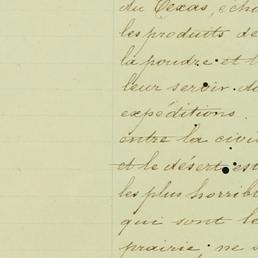 du Texas, écha
les produits de
la poudre et l
leur servir da
expéditions.
entre la civi
et le désert est
les plus horrible
qui sont le
prairie ne s